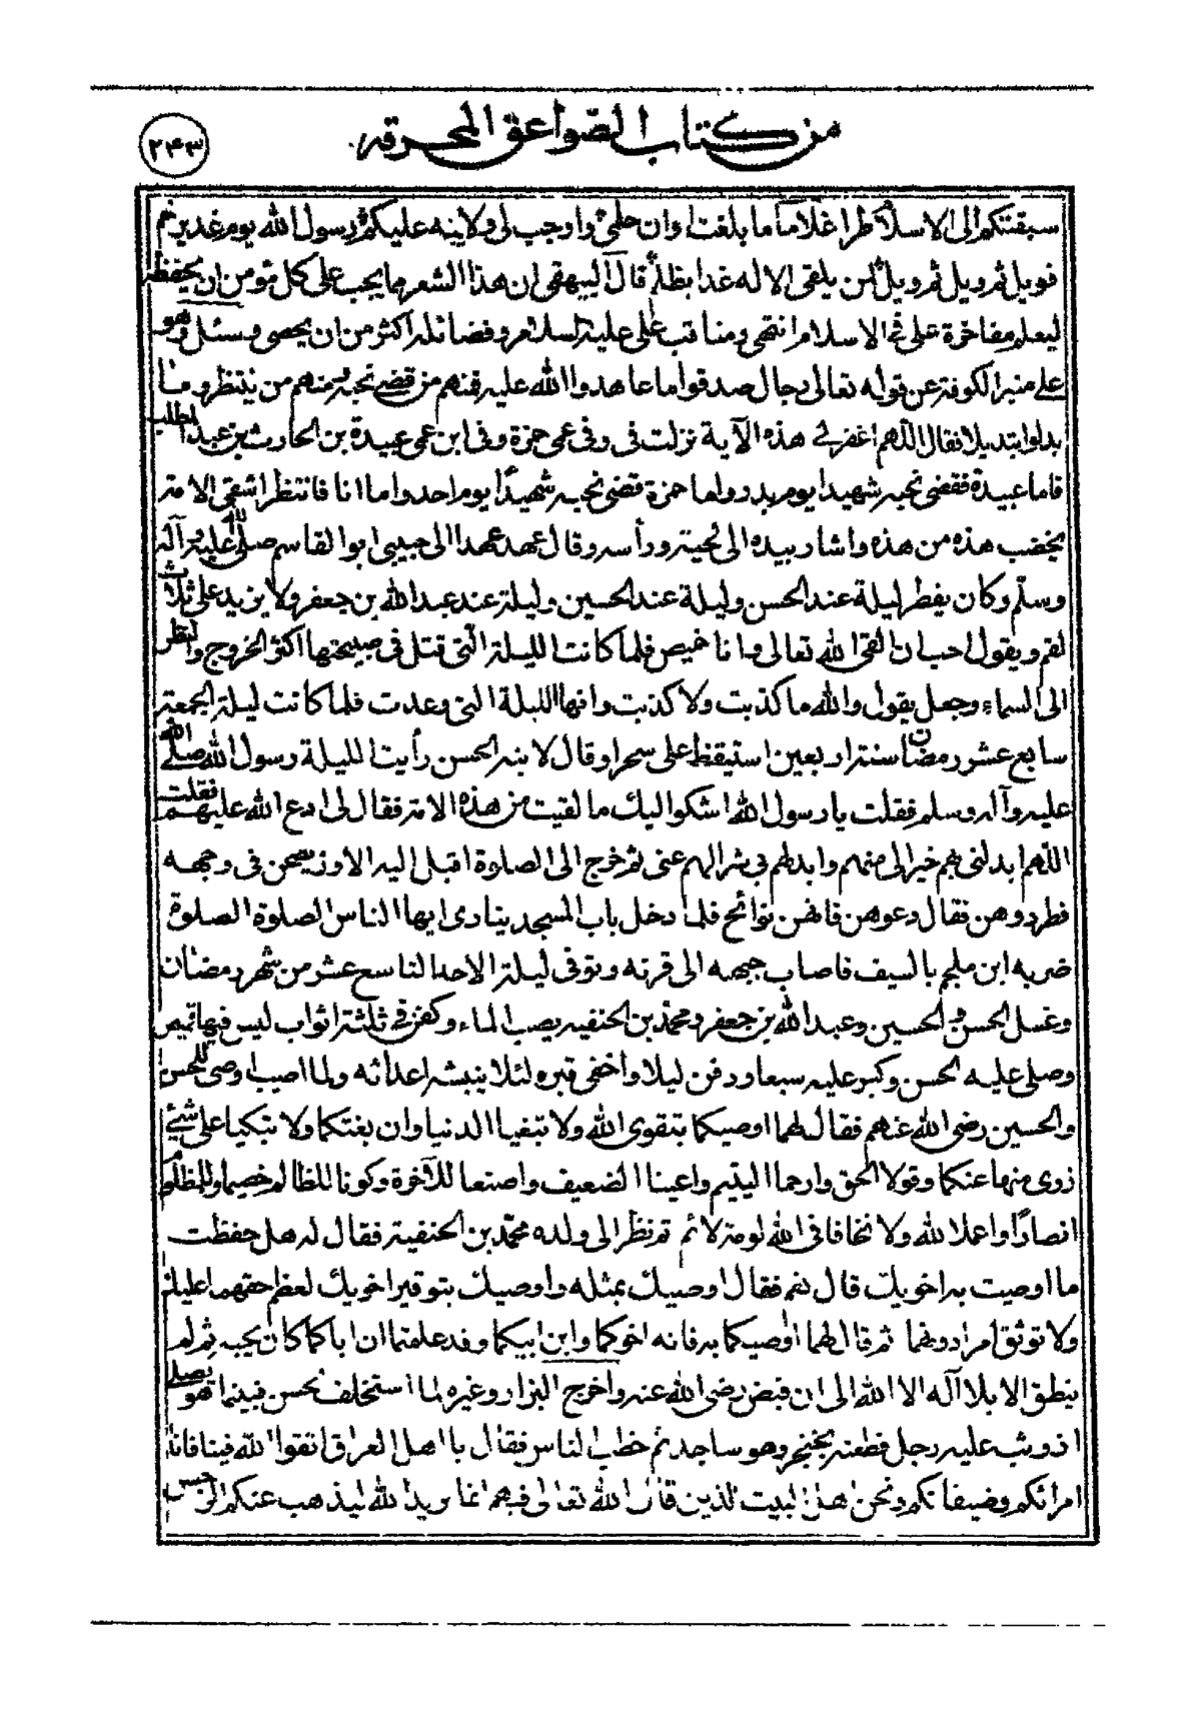 من كتاب الصواعق المحرقه
٢٤٣
سبقتكم الى الاسلام طرا غلاما ما بلغت اوان حلمي واوجب لي ولايته عليكم رسول الله يوم غدير خم
فويل ثم ويل ثم ويل لمن يلقى الاله غدا بظلمي قال البيهقي ان هذا الشعر مما يجب على كل مؤمن ان يحفظه
ليعلم مفاخرة علي في الاسلام انتهى ومناقب علي عليه السلام وفضائله اكثر من ان يحصى وسئل وهو
على منبر الكوفة عن قوله تعالى رجال صدقوا ما عاهدوا الله عليه فمنهم من قضى نحبه ومنهم من ينتظر وما
بدلوا تبديلا فقال اللهم اغفر هذه الآية نزلت في وفي عمي حمزة وفي ابن عمي عبيدة بن الحارث بن عبد المطلب
فاما عبيدة فقضى نحبه شهيدا يوم بدر واما حمزة قضى نحبه شهيدا يوم احد واما انا فانتظر اشقى الامة
يخضب هذه من هذه واشار بيده الى لحيته ورأسه وقال عهد عهدا الى حبيبي ابو القاسم صلى الله عليه وآله
وسلم وكان يفطر ليلة عند الحسن وليلة عند الحسين وليلة عند عبد الله بن جعفر ولا يزيد على ثلاث
لقم ويقول احب ان القى الله تعالى وانا خميص فلما كانت الليلة التي قتل في صبيحتها اكثر الخروج والنظر
الى السماء وجعل يقول والله ما كذبت ولا كذبت وانها الليلة التي وعدت فلما كانت ليلة الجمعة
سابع عشر رمضان سنة اربعين استيقظ علي سحرا وقال لابنه الحسن رأيت الليلة رسول الله صلى الله
عليه وآله وسلم فقلت يا رسول الله اشكو اليك ما لقيت من هذه الامة فقال لي ادع الله عليهم فقلت
اللهم ابدلني بهم خيرا لي منهم وابدلهم بي شرا لهم عني ثم خرج الى الصلوة اقبل اليه الاوز يصحن في وجهه
فطردوهن فقال دعوهن فانهن نوائح فلما دخل باب المسجد ينادي ايها الناس الصلوة الصلوة
ضربه ابن ملجم بالسيف فاصاب جبهه الى قرنه وتوفي ليلة الاحد التاسع عشر من شهر رمضان
وغسل الحسن والحسين وعبد الله بن جعفر ومحمد بن الحنفيه يصب الماء وكفن في ثلثة اثواب ليس فيها قميص
وصلى عليه الحسن وكبر عليه سبعا ودفن ليلا واخفى قبره لئلا ينبشه اعدائه ولما اصيب اوصى للحسن
والحسين رضي الله عنهم فقال لهما اوصيكما بتقوى الله ولا تبغيا الدنيا وان بغتكما ولا تبكيا على شيئ
زوى منها عنكما وقولا الحق وارحما اليتيم واعينا الضعيف واصنعا للآخرة وكونا للظالم خصيما وللمظلوم
انصارا واعملا لله ولا تخافا في الله لومة لائم ثم نظر الى ولده محمد بن الحنفية فقال له هل حفظت
ما اوصيت به اخويك قال نعم فقال اوصيك بمثله واوصيك بتوقير اخويك لعظم حقهما عليك
ولا توثق امرا دونهما ثم قال لهما اوصيكما به فانه اخوكما وابن ابيكما وقد علمتما ان اباكما كان يحبه ثم لم
ينطق الا بلا آله الا الله الى ان قبض رضي الله عنه واخرج البزار وغيره لما استخلف حسن فبينما هو يصلي
اذ وثب عليه رجل فطعنه بخنجر وهو ساجد ثم خطب الناس فقال يا اهل العراق اتقوا الله فينا فانا
امرائكم وضيفانكم ونحن اهل البيت الذين قال الله تعالى فيهم انما يريد الله ليذهب عنكم الرجس